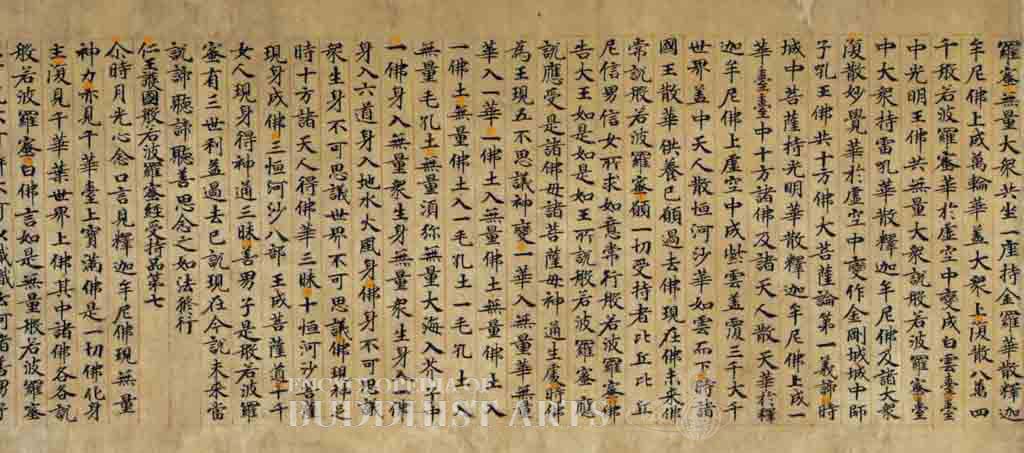 羅蜜無量大衆共坐一座持金華散釋迦
牟尼佛上成萬輪華蓋大衆上復散八萬四
千般若波羅蜜華於虛空中變成白雲臺臺
中光明王佛共無量大衆說般若波羅蜜臺
中大衆持雷吼華散釋迦牟尼佛及諸大衆
復散妙覺華於虛空中變作金剛城城中師
子吼王佛共十方佛大菩薩論第一義諦時
城中菩薩持光明華散釋迦牟尼佛上成一
華臺臺中十方諸佛及諸天人散天華於釋
迦牟尼佛上虛空中成紫雲蓋覆三千大千
世界蓋中天人散恒河沙華如雲而下時諸
國王散華供養已願過去佛現在佛未來佛
常說般若波羅蜜願一切受持者比丘比丘
尼信男信女所求如意常行般若波羅蜜佛
告大王如是如是如王所說般若波羅蜜應
說應受是諸佛母諸菩薩母神通生處時佛
為王現五不思議神變一華入無量華無
華入一華一佛土入無量佛土無量佛土入
一佛土無量佛土入一毛孔土一毛孔土入
無量毛孔土無量須弥無量大海入芥
一佛身入無量衆生身無量衆生身入一佛
身入六道身入地水火風身佛身不可思
衆生身不可思議世界不可思議佛現神足
時十方諸天人得佛華三昧十恒河沙菩
現身成佛三恒河沙八部王成菩薩道十千
女人現身得神通三昧善男子是般若波羅
蜜有三世利益過去已說現在今說未來當
說諦聽諦聽善思念之如法修行
仁王護國般若波羅蜜經受持品第七
尒時月光心念口言見釋迦牟尼佛現無量
神力亦見千華臺上寶滿佛是一切佛化身
主復見千華葉世界上佛其中諸佛各各說
般若波羅蜜白佛言如是無量般若波羅蜜
ENCYCLOPEDIA OF
BUDDHIST ARTS